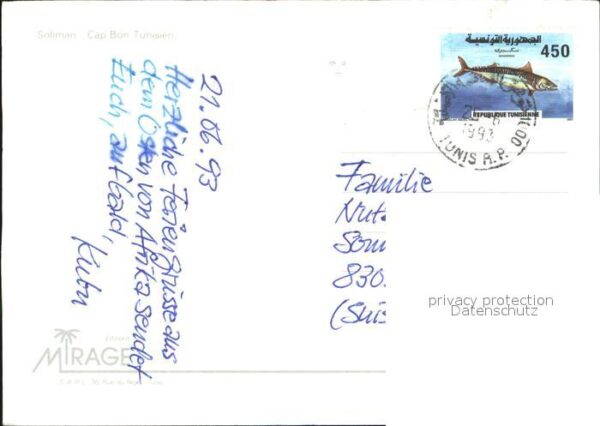 Soliman - Cap Bon Tunisien
21.06.93
Herzliche Feriengrüsse aus
dem Osten von Afrika sendet
Euch, auf bald,
Edition
MIRAGE
الجمهورية التونسية
450
REPUBLIQUE TUNISIENNE
1993
TUNIS R.P.
Familie
830
privacy protection
Datenschutz